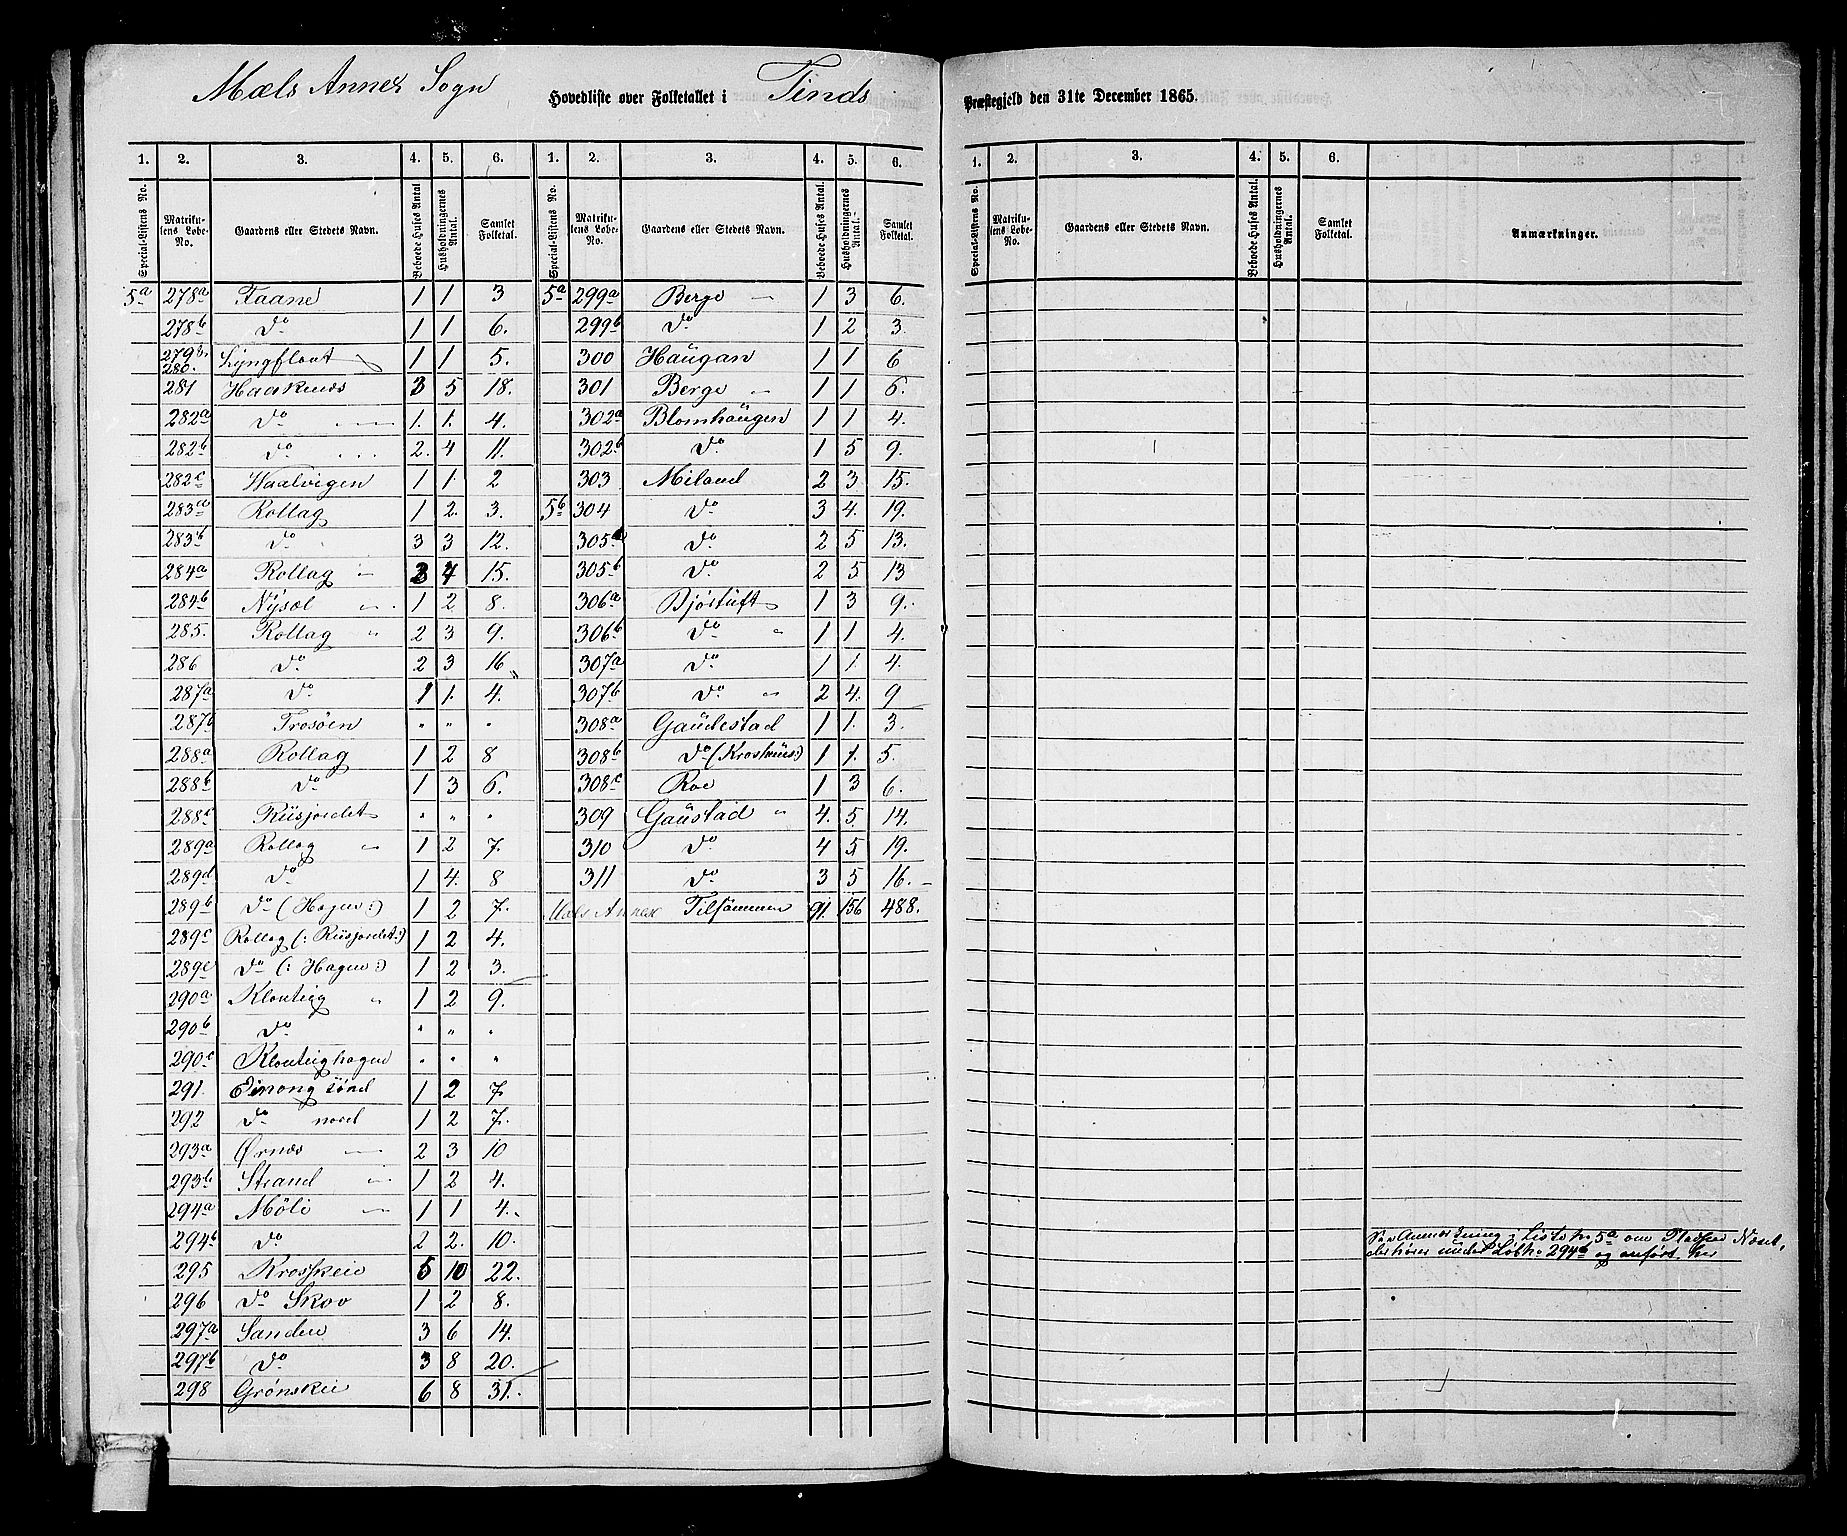 Mæls Annex Sogn
Hovedliste over Folketallet i Tinds Præstegjeld den 31te December 1865.
1. 2. 3. 4. 5. 6. 1. 2. 3. 4. 5. 6. 1. 2. 3. 4. 5. 6.
Special-Listens No. Matrikulens Løbe-No. Gaardens eller Stedets Navn. Beboede Huses Antal. Husholdningernes Antal. Samlet Folketal. Special-Listens No. Matrikulens Løbe-No. Gaardens eller Stedets Navn. Beboede Huses Antal. Husholdningernes Antal. Samlet Folketal. Special-Listens No. Matrikulens Løbe-No. Gaardens eller Stedets Navn. Beboede Huses Antal. Husholdningernes Antal. Samlet Folketal. Anmærkninger.
5a 278a Faane 1 1 3
278b Do 1 1 6.
279b. 280. Lyngflaat 1 1 5.
281 Haaknæs 3 5 18.
282a Do 1. 1. 4.
282b Do 2. 4 11.
282c Haalvigen 1 1 2
283a Rollag 1 2. 3.
283b Do 3 3 12.
284a Rollag 3 4 15.
284b Nysæl 1 2 8.
285. Rollag 2 3 9.
286 Do 2 3 16
287a Do 1 1. 4.
287b Frosøen " " "
288a Rollag 1 2 8
288b Do 1 3 6.
288c Riisjordet " " "
289a Rollag 1 2 7.
289d Do 1 4. 8
289b Do (Hagen:) 1 2 7.
289c Rollag (: Riisjordet:) 1 2 4.
289e Do (: Hagen:) 1 2 3.
290a Klonteig 1 2 9.
290b Do " " "
290c Klonteighagen " " "
291. Einong sønd 1 2 7.
292 Do nord 1 2 7.
293a Ørnæs 2 3 10
293b Strand 1 2 4.
294a Møli 1 1 4.
294b Do 2 2. 10.
295 Krosskeie 5 10 22.
296 Do Skov 1 2 8.
297a Sanden 3 6 14.
297b Do 3 8 20.
298 Grønskei 6 8 31.
5a 299a Berge 1 3 6.
299b Do 1 2 3.
300 Haugan 1 1 6
301 Berge 1 1 6.
302a Blomhaugen 1 1 4.
302b Do 1 5 9.
303 Miland 2 3 15.
5b 304 Do 3 4. 19.
305a Do 2 5 13.
305b Do 2 5 13
306a Bjørtuft 1 3 9.
306b Do " 1 1 4.
307a Do 1 1. 4.
307b Do " 2 4. 9
308a Gaudestad 1 1. 3.
308b Do (Kroshuus:) 1 1. 5.
308c Roe 1 3 6.
309 Gaustad " 4. 5. 14.
310 Do 4 5 19.
311 Do 3 5 16.
Mæls Annex Tilsammen 91. 156 488.
Se Anmærkning i Liste No 5a om Pladsen Næset,
der hører under Løbno 294b og anført her